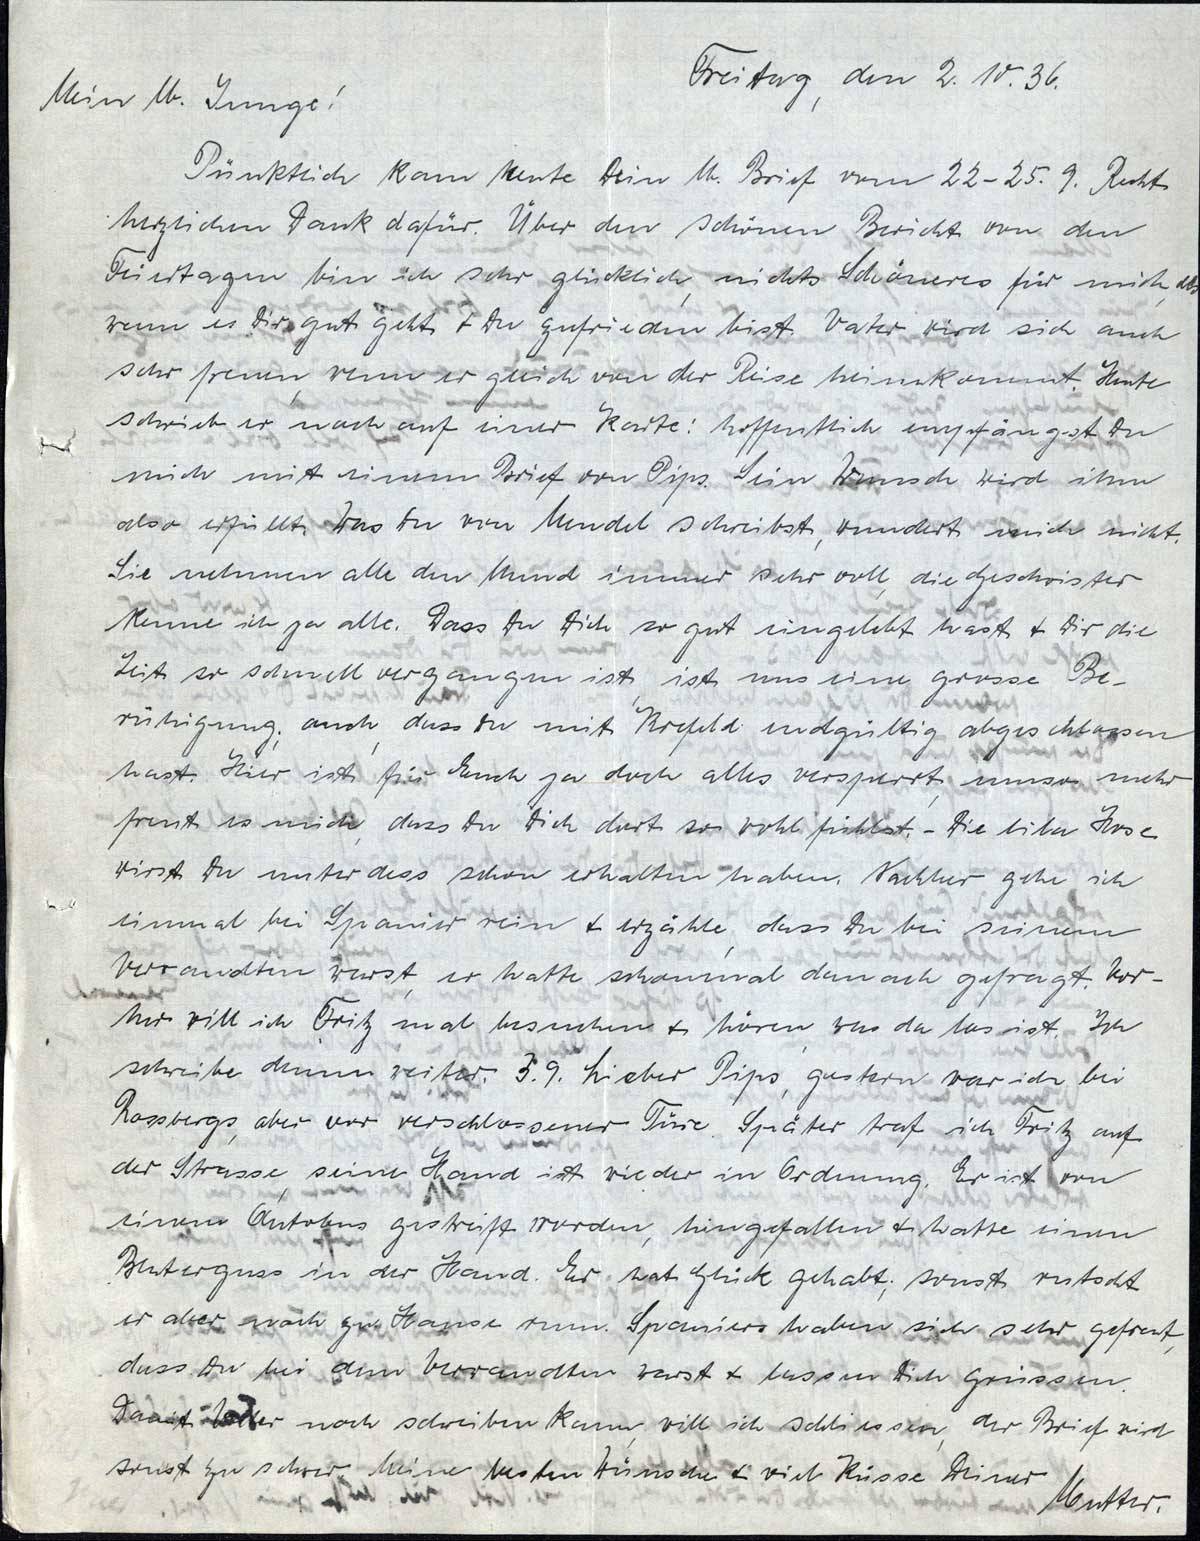 Freitag, den 2. 10. 36.
Mein lb. Junge!
Pünktlich kam heute Dein lb. Brief vom 22-25. 9. Recht
herzlichen Dank dafür. Über den schönen Bericht von den
Feiertagen bin ich sehr glücklich, nichts Schöneres für mich, als
wenn es Dir gut geht & Du zufrieden bist. Vater wird sich auch
sehr freuen, wenn er gleich von der Reise heimkommt. Heute
schrieb er noch auf einer Karte: hoffentlich empfängst Du
mich mit einem Brief von Pips. Sein Wunsch wird ihm
also erfüllt. Was Du von Mendel schreibst, wundert mich nicht.
Sie nehmen alle den Mund immer sehr voll, die Geschwister
kenne ich ja alle. Dass Du Dich so gut eingelebt hast & Dir die
Zeit so schnell vergangen ist, ist uns eine grosse Be-
ruhigung, auch, dass Du mit Krefeld endgültig abgeschlossen
hast. Hier ist für Euch ja doch alles versperrt, umso mehr
freut es mich, dass Du Dich dort so wohl fühlst. - Die Hose
wirst Du unterdess schon erhalten haben. Nachher gehe ich
einmal bei Spanier rein & erzähle, dass Du bei seinem
Verwandten warst, er hatte schonmal danach gefragt. Vor-
her will ich Fritz mal besuchen & hören, was da los ist. Ich
schreibe dann weiter. 3. 9. Lieber Pips, gestern war ich bei
Rossbergs, aber vor verschlossener Türe. Später traf ich Fritz auf
der Strasse, seine Hand ist wieder in Ordnung. Er ist von
einem Autobus gestreift worden, hingefallen & hatte einen
Bluterguss in der Hand. Er hat Glück gehabt, sonst rutscht
er aber noch zu Hause rum. Spaniers haben sich sehr gefreut,
dass Du bei dem Verwandten warst & lassen Dich grüssen.
Damit Vater noch schreiben kann, will ich schliessen, der Brief wird
sonst zu schwer. Meine besten Wünsche & viele Küsse Deiner
Mutter.